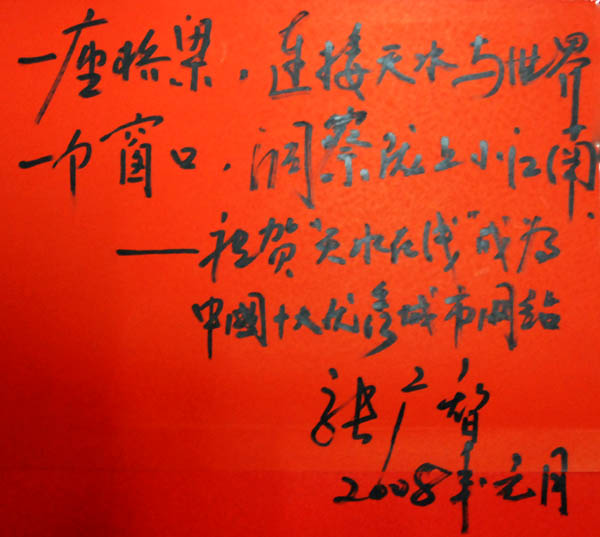 一座桥梁，连接天水与世界
一个窗口，洞察陇上小江南
——祝贺“天水在线”成为
中國十大优秀城市网站
张广智
2008年元月